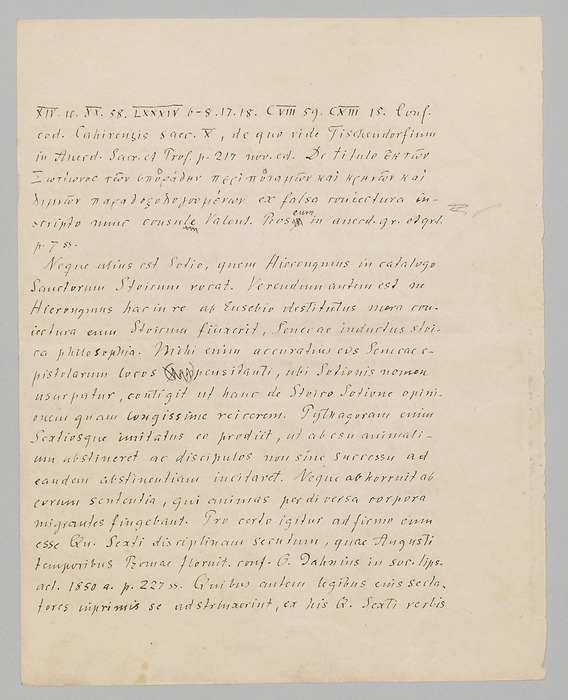 XIV. 10. XX. 58. LXXXIV 6-8. 17. 18. CVIII 59. CXIII 15. Conf.
cod. Cahirensis saec. X, de quo vide Tischendorfium
in Anecd. Sacr. et Prof. p. 217 nov. ed. De titulo ἐκ τῶν
Σωτίωνος τῶν σποράδην περὶ ποταμῶν καὶ κρηνῶν καὶ
λιμνῶν παραδοξολογουμένων ex falsa coniectura in-
scripto nunc consule Valent. Roseum in anecd. gr. et grl.
p. 7 ss.
Neque alius est Sotio, quem Hieronymus in catalogo
Sanctorum Stoicum vocat. Verendum autem est ne
Hieronymus hac in re ab Eusebio destitutus mera con-
iectura eum Stoicum finxerit, Senecae inductus stoi-
ca philosophia. Mihi enim accuratius eos Senecae e-
pistolarum locos pensitanti, ubi Sotionis nomen
usurpatur, contigit ut hanc de Stoico Sotione opini-
onem quam longissime reicerem. Pythagoram enim
Sextiosque imitatus eo prodiit, ut ab esu animali-
um abstineret ac discipulos non sine successu ad
eandem abstinentiam incitaret. Neque abhorruit ab
eorum sententia, qui animas per diversa corpora
migrantes fingebant. Pro certo igitur adfirmo eum
esse Qu. Sexti disciplinam secutum, quae Augusti
temporibus Romae floruit. conf. O. Jahnius in soc. lips.
act. 1850 a. p. 277 ss. Quibus autem legibus eius secta-
tores inprimis se adstrinxerint, ex his Q. Sexti verbis